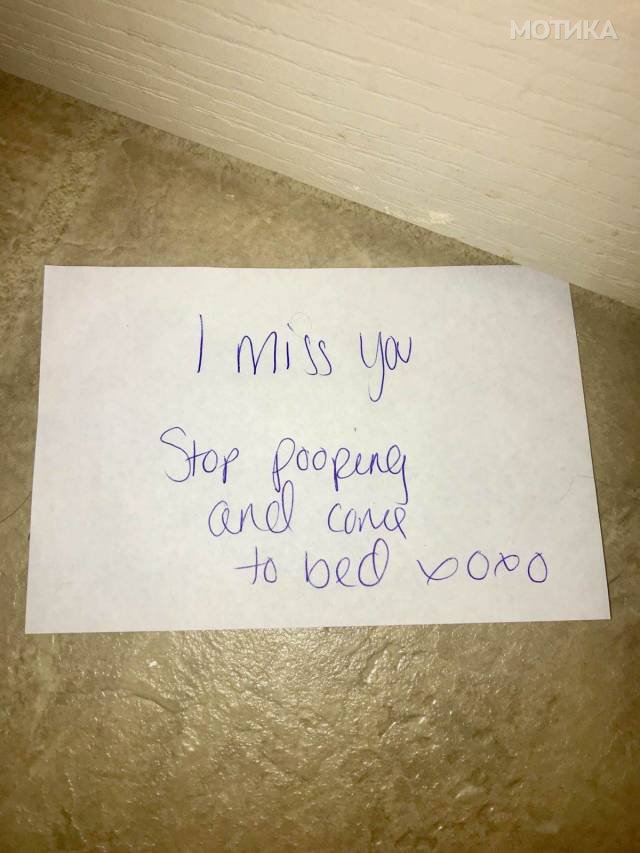 МОТИКА
I miss you
Stop pooping
and come
to bed xoxo